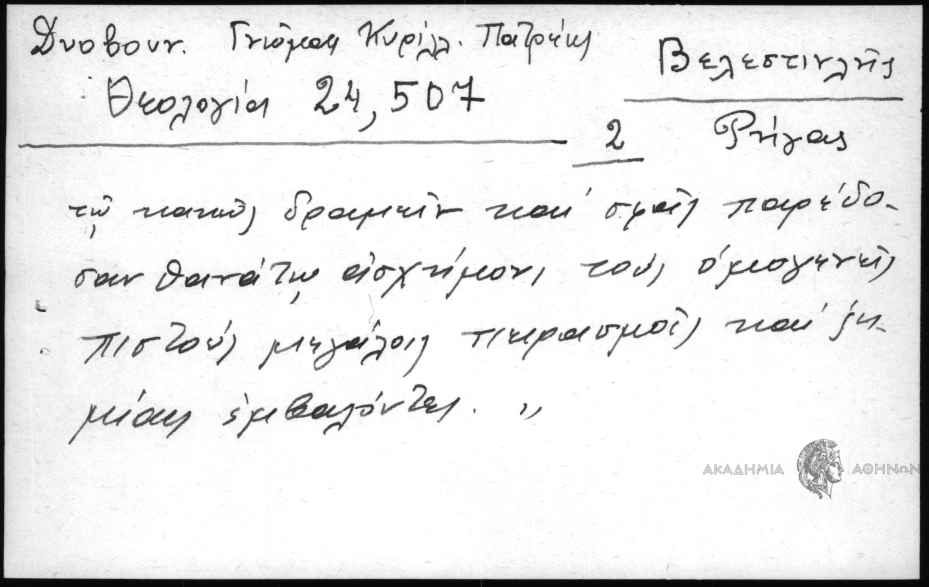 Δυοβουν. Γνώμαι Κυρίλλ. Πατρών
Βελεστινλῆς
Θεολογία 24,507
2 Ρήγας
τῷ κακῶς δραμεῖν καί σφᾶς παρέδο-
σαν θανάτῳ αἰσχήμονι, τούς ὁμογενεῖς
πιστούς μεγάλοις πειρασμοῖς καί ζη-
μίαις ἐμβαλόντες. "
ΑΚΑΔΗΜΙΑ ΑΘΗΝΩΝ